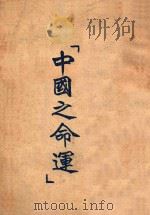 「中國之命運」
www.mtoou.info